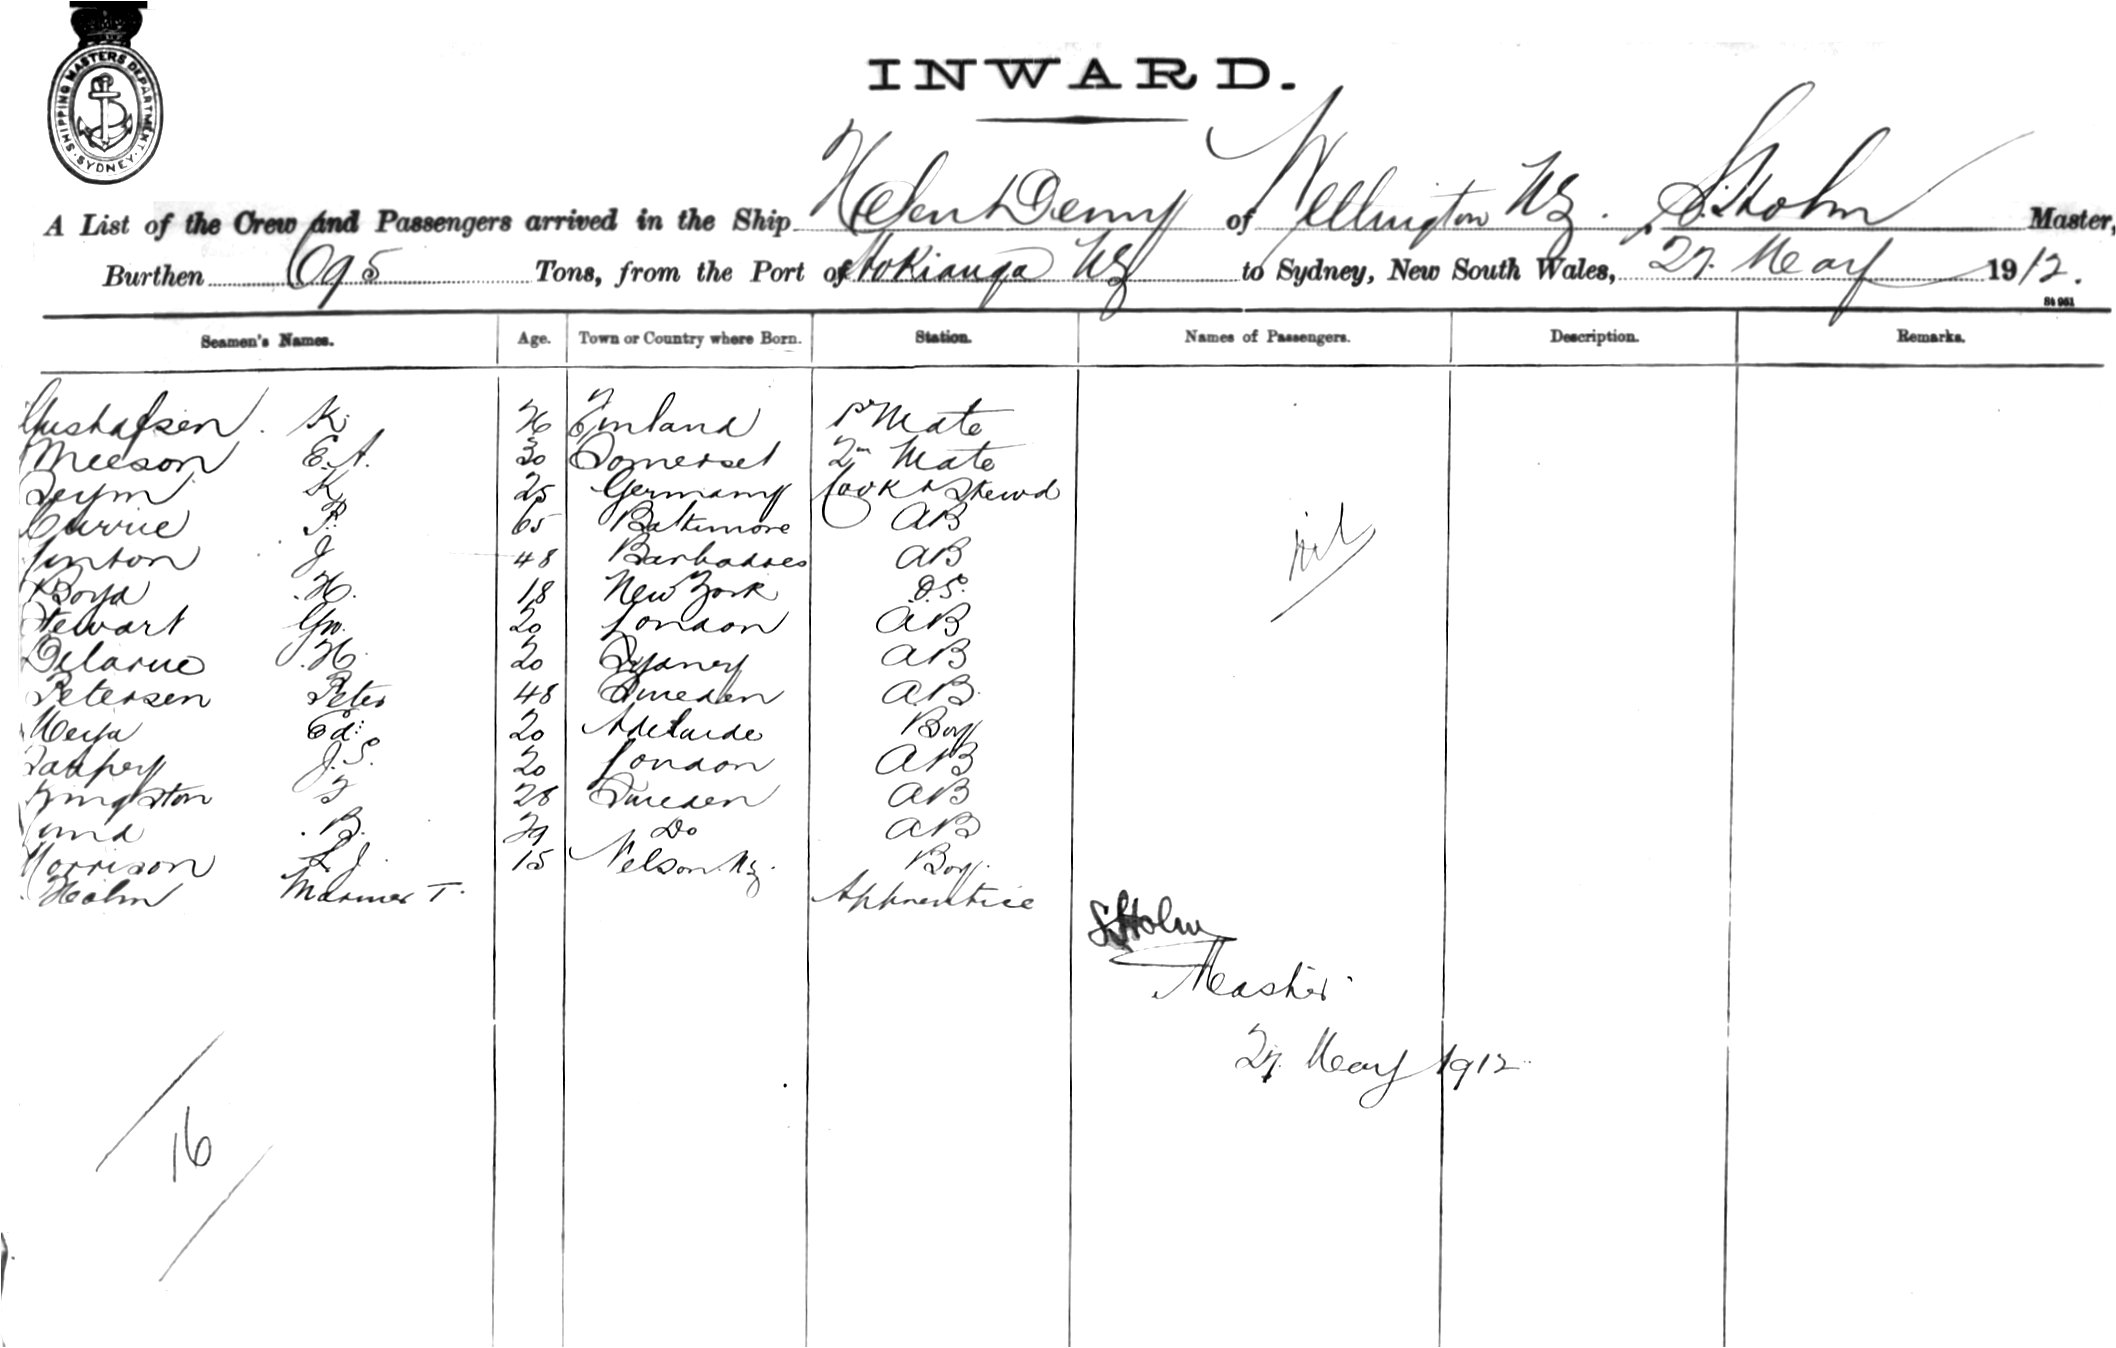 SHIPPING MASTERS DEPARTMENT. SYDNEY.
INWARD.
A List of the Crew and Passengers arrived in the Ship Helen Denny of Wellington NZ. S. Holm Master,
Burthen 695 Tons, from the Port of Hokianga NZ to Sydney, New South Wales, 27. May 1912.
St 961
Seamen's Names. Age. Town or Country where Born. Station. Names of Passengers. Description. Remarks.
Gustafsen K. 26 Finland 1st Mate
Meeson E. A. 30 Somerset 2n Mate
K 25 Germany Cook & Stewd
Currie P. 65 Baltimore AB
Linton J 48 Barbadoes AB
nil
Boyd H. 18 New York O.S.
Stewart Geo. 20 London AB
Delarue H. 20 Sydney AB
Petersen Peter 48 Sweden AB.
Ed: 20 Adelaide Boy
J. S. 20 London AB
28 Sweden AB
Lund B. 29 Do AB
Morrison L J. 15 Nelson NZ. Boy.
Holm Mariner T. Apprentice
S. Holm
Master
27. May 1912
16